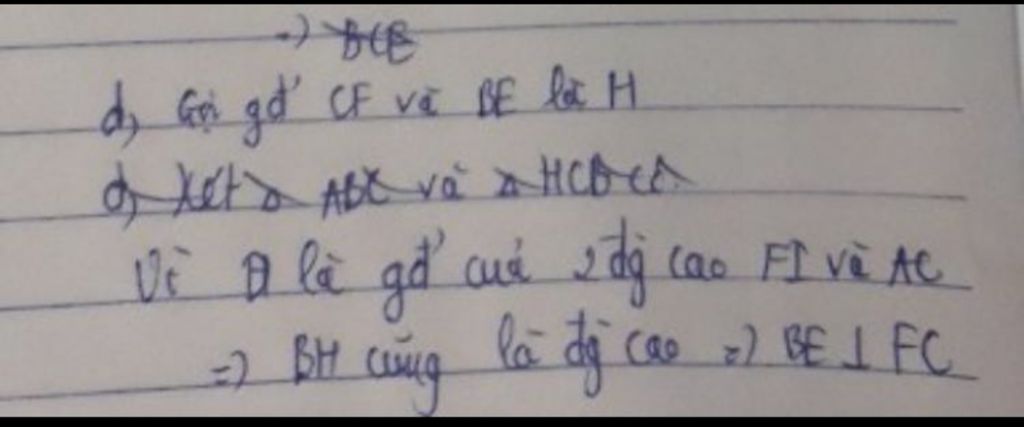 =) BCE
d, Gọi gđ' CF và BE là H
d, Xét △ ABC và △ HCD có
Vì D là gđ' cuả 2 đg cao FI và AC
=) BH cũng là đg cao =) BE ⊥ FC